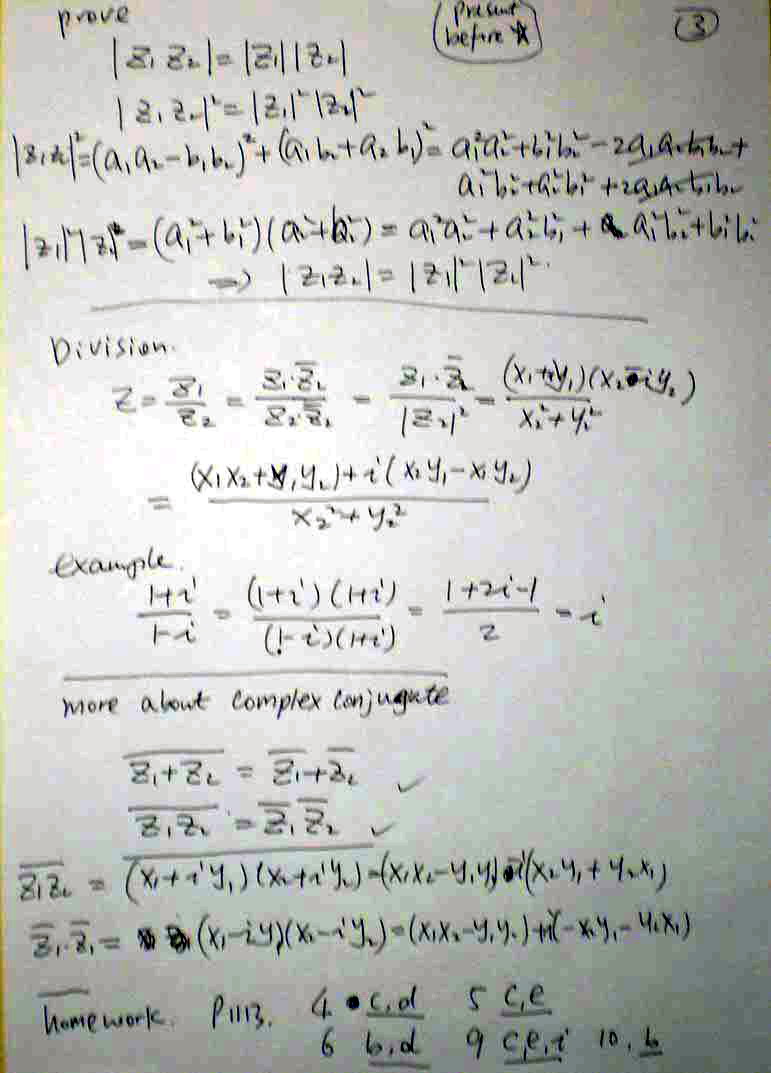 prove
Present before ☆
③
|z₁ z₂| = |z₁| |z₂|
|z₁ z₂|² = |z₁|² |z₂|²
|z₁z₂|² = (a₁a₂ − b₁b₂)² + (a₁b₂ + a₂b₁)² = a₁²a₂² + b₁²b₂² − 2a₁a₂b₁b₂ +
a₁²b₂² + a₂²b₁² + 2a₁a₂b₁b₂
|z₁|²|z₂|² = (a₁² + b₁²)(a₂² + b₂²) = a₁²a₂² + a₂²b₁² + a₁²b₂² + b₁²b₂²
⟹ |z₁z₂| = |z₁|² |z₂|².
Division.
z = z₁/z₂ = z₁·z̄₂/z₂·z̄₂ = z₁·z̄₂/|z₂|² = (x₁+iy₁)(x₂−iy₂)/x₂²+y₂²
= (x₁x₂+y₁y₂)+i(x₂y₁−x₁y₂)/x₂²+y₂²
example.
1+i/1−i = (1+i)(1+i)/(1−i)(1+i) = 1+2i−1/2 = i
more about complex conjugate
\overline{z₁+z₂} = z̄₁+z̄₂ ✓
\overline{z₁z₂} = z̄₁ z̄₂ ✓
\overline{z₁z₂} = \overline{(x₁+iy₁)(x₂+iy₂)} = (x₁x₂−y₁y₂)−i(x₂y₁+y₂x₁)
z̄₁·z̄₂ = (x₁−iy₁)(x₂−iy₂) = (x₁x₂−y₁y₂)+i(−x₂y₁−y₂x₁)
homework. P1113. 4 c,d 5 c,e
6 b,d 9 c,e,i 10, b